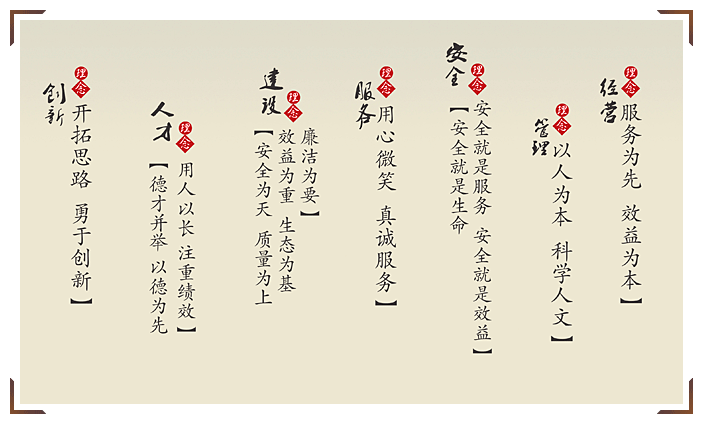 创新
理念
开拓思路 勇于创新】
人才
理念
【德才并举 以德为先
用人以长 注重绩效】
建设
理念
【安全为天 质量为上
效益为重 生态为基
廉洁为要】
服务
理念
用心微笑 真诚服务】
安全
理念
【安全就是生命
安全就是服务 安全就是效益】
管理
理念
以人为本 科学人文】
经营
理念
服务为先 效益为本】